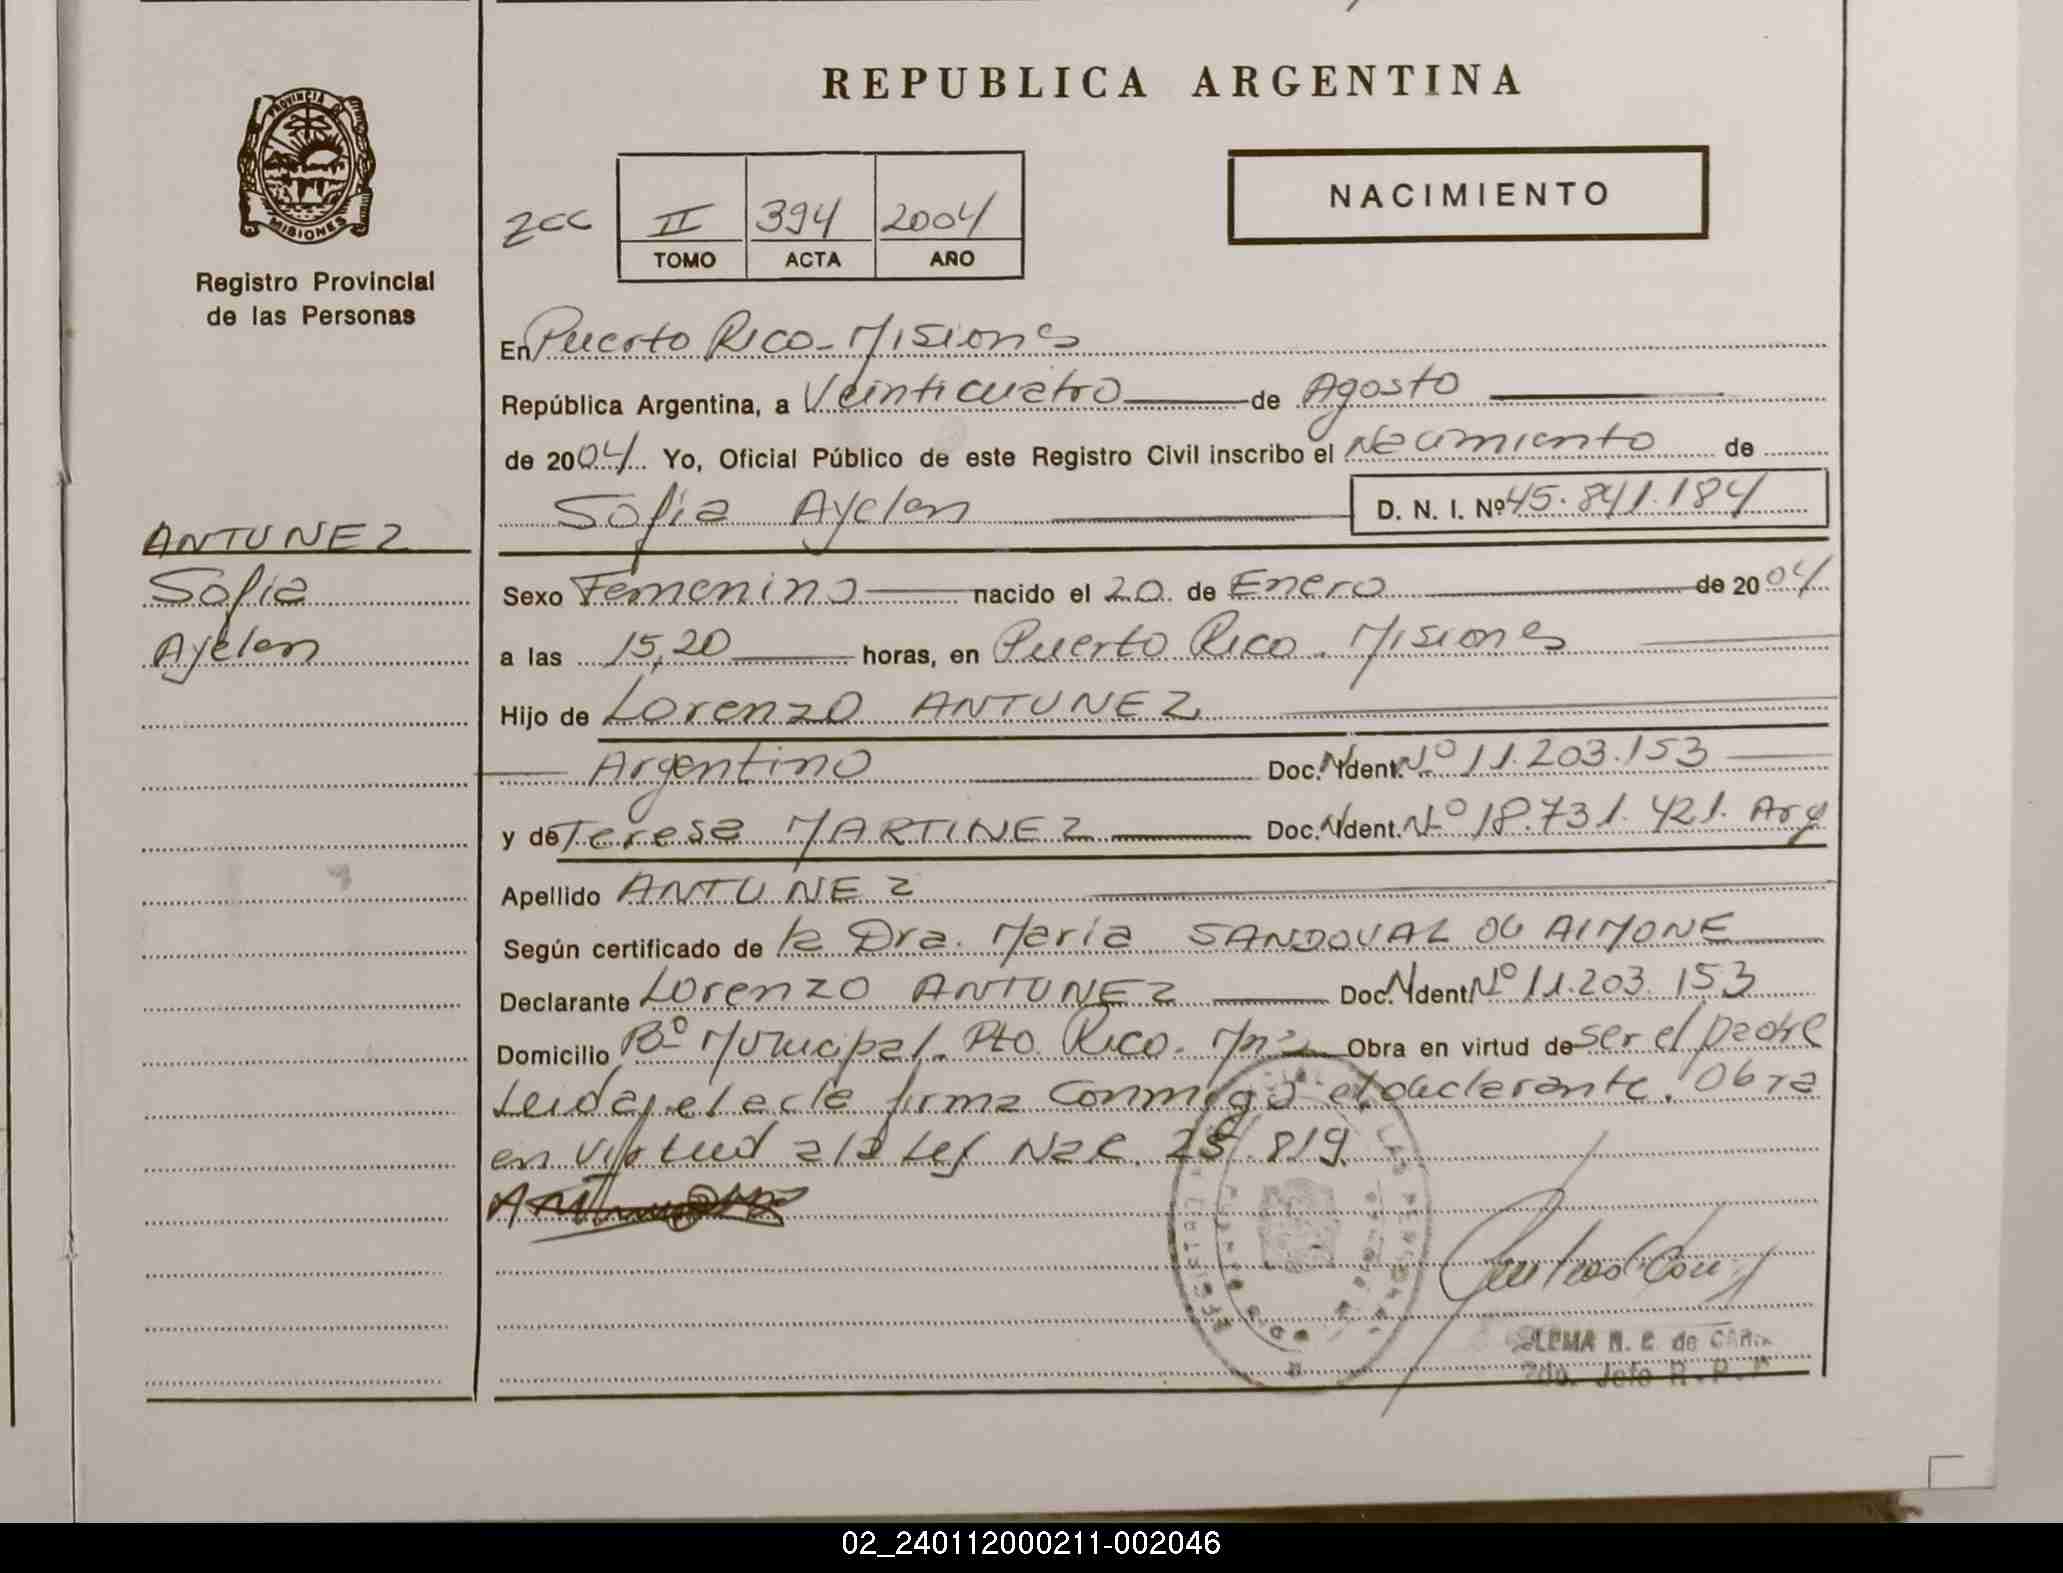 REPUBLICA ARGENTINA
PROVINCIA DE
MISIONES
Registro Provincial
de las Personas
NACIMIENTO
II 394 2004
TOMO ACTA AÑO
En Puerto Rico - Misiones
República Argentina, a Veinticuatro de Agosto
de 2004 Yo, Oficial Público de este Registro Civil inscribo el Nacimiento de
Sofia Ayelen D. N. I. Nº 45.841.184
ANTUNEZ
Sofia
Ayelen
Sexo Femenino nacido el 20 de Enero de 2004
a las 15,20 horas, en Puerto Rico. Misiones
Hijo de Lorenzo ANTUNEZ
Argentino Doc. Ident. Nº 11.203.153
y de Teresa MARTINEZ Doc. Ident. Nº 18.731.421. Arg
Apellido ANTUNEZ
Según certificado de la Dra. Maria SANDOVAL DE AIMONE
Declarante Lorenzo ANTUNEZ Doc. Ident Nº 11.203.153
Domicilio Bº Municipal. Pto. Rico. Mnes Obra en virtud de ser el padre
Leida el acta firma Conmigo el declarante. Obra
en virtud a la Ley Nac. 25.819.
02_240112000211-002046